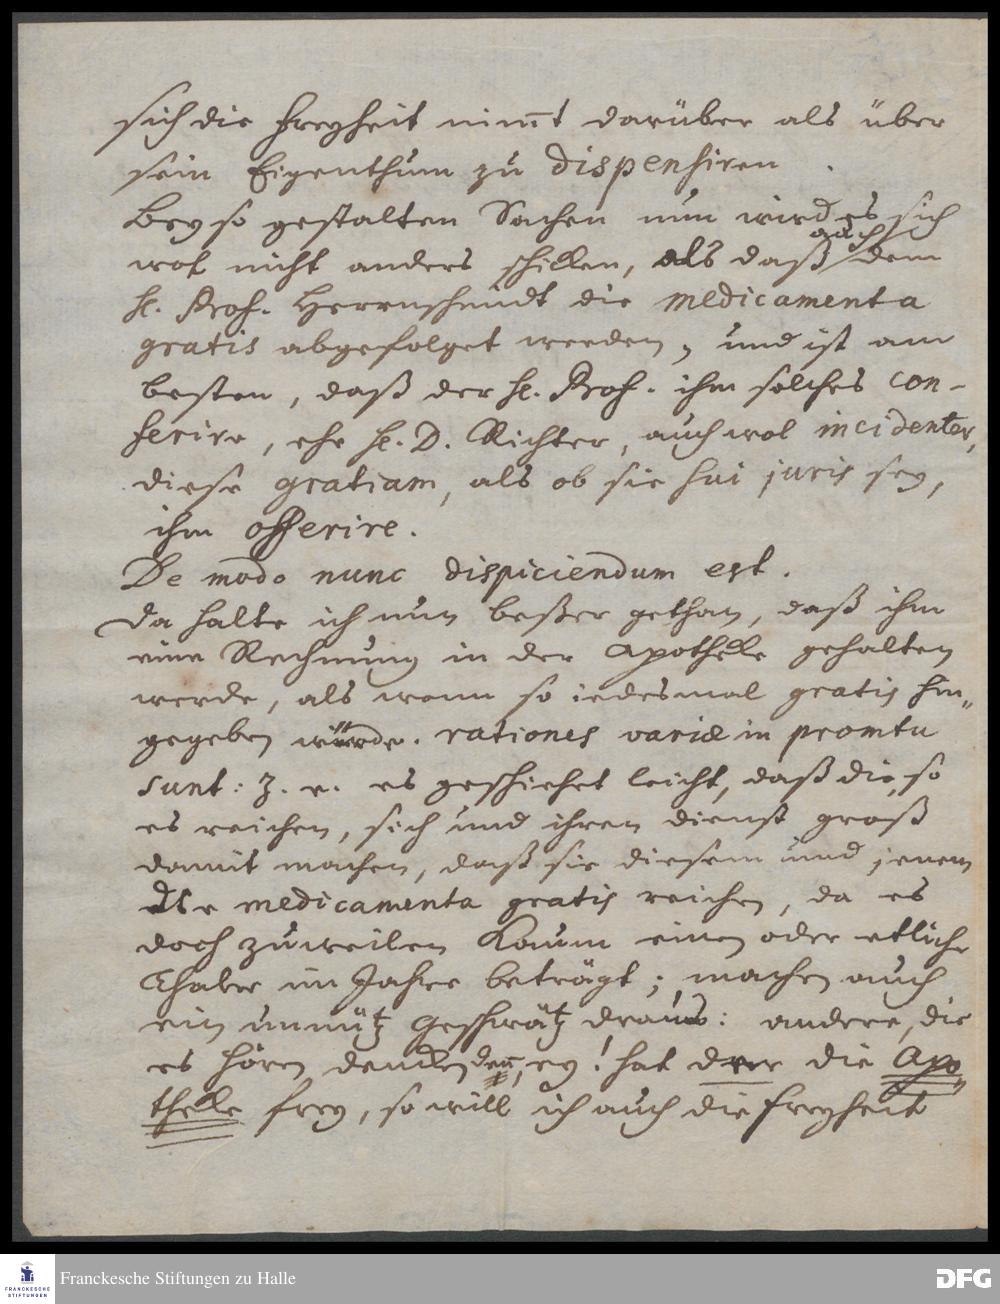 sich die Freyheit nim̄t darüber als über
sein Eigenthum zu dispensiren.
Bey so gestalten Sachen nun wird es sich
wol nicht anders schicken, als daß auch dem
H. Prof. Herrnschmidt die medicamenta
gratis abgefolget werden, und ist am
besten, daß der H. Prof. ihm solches con-
ferire, ehe H. D. Richter, auch wol incidenter,
diese gratiam, als ob sie sui juris sey,
ihm offerire.
De modo nunc dispiciendum est.
Da halte ich nun beßer gethan, daß ihm
eine Rechnung in der Apotheke gehalten
werde, als wenn so iedesmal gratis hin-
gegeben würde. rationes variæ in promtu
sunt: z. e. es geschiehet leicht, daß die, so
es reichen, sich und ihren dienst groß
damit machen, daß sie diesem und jenem
die medicamenta gratis reichen, da es
doch zuweilen kaum einen oder etliche
Thaler im Jahre beträgt; machen auch
ein unnütz Geschwätz draus: andere, die
es hören dencken den̄, ey! hat der die Apo-
theke frey, so will ich auch die Freyheit
Franckesche Stiftungen zu Halle
FRANCKESCHE STIFTUNGEN
DFG